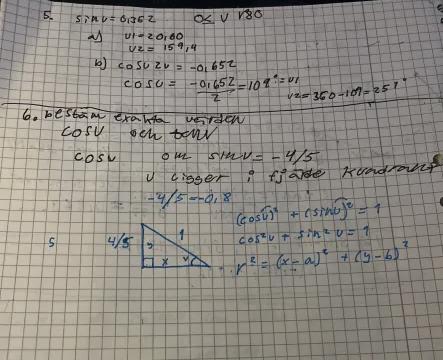 5. sinv=0,352 0≤ v 180
a) v1=20,60
v2 = 159,4
b) cos v 2v = -0,652
cosv = -0,652/2 = 109° = v1 v2=360-109=251°
6. bestäm exakta värden
cosv och tanv
cosv om sinv= -4/5
v ligger i fjärde kvadrant
-4/5=-0,8
(cosv)² + (sinv)² = 1
cos²v + sin²v = 1
r² = (x-a)² + (y-b)²
5 4/5 y 1 x v